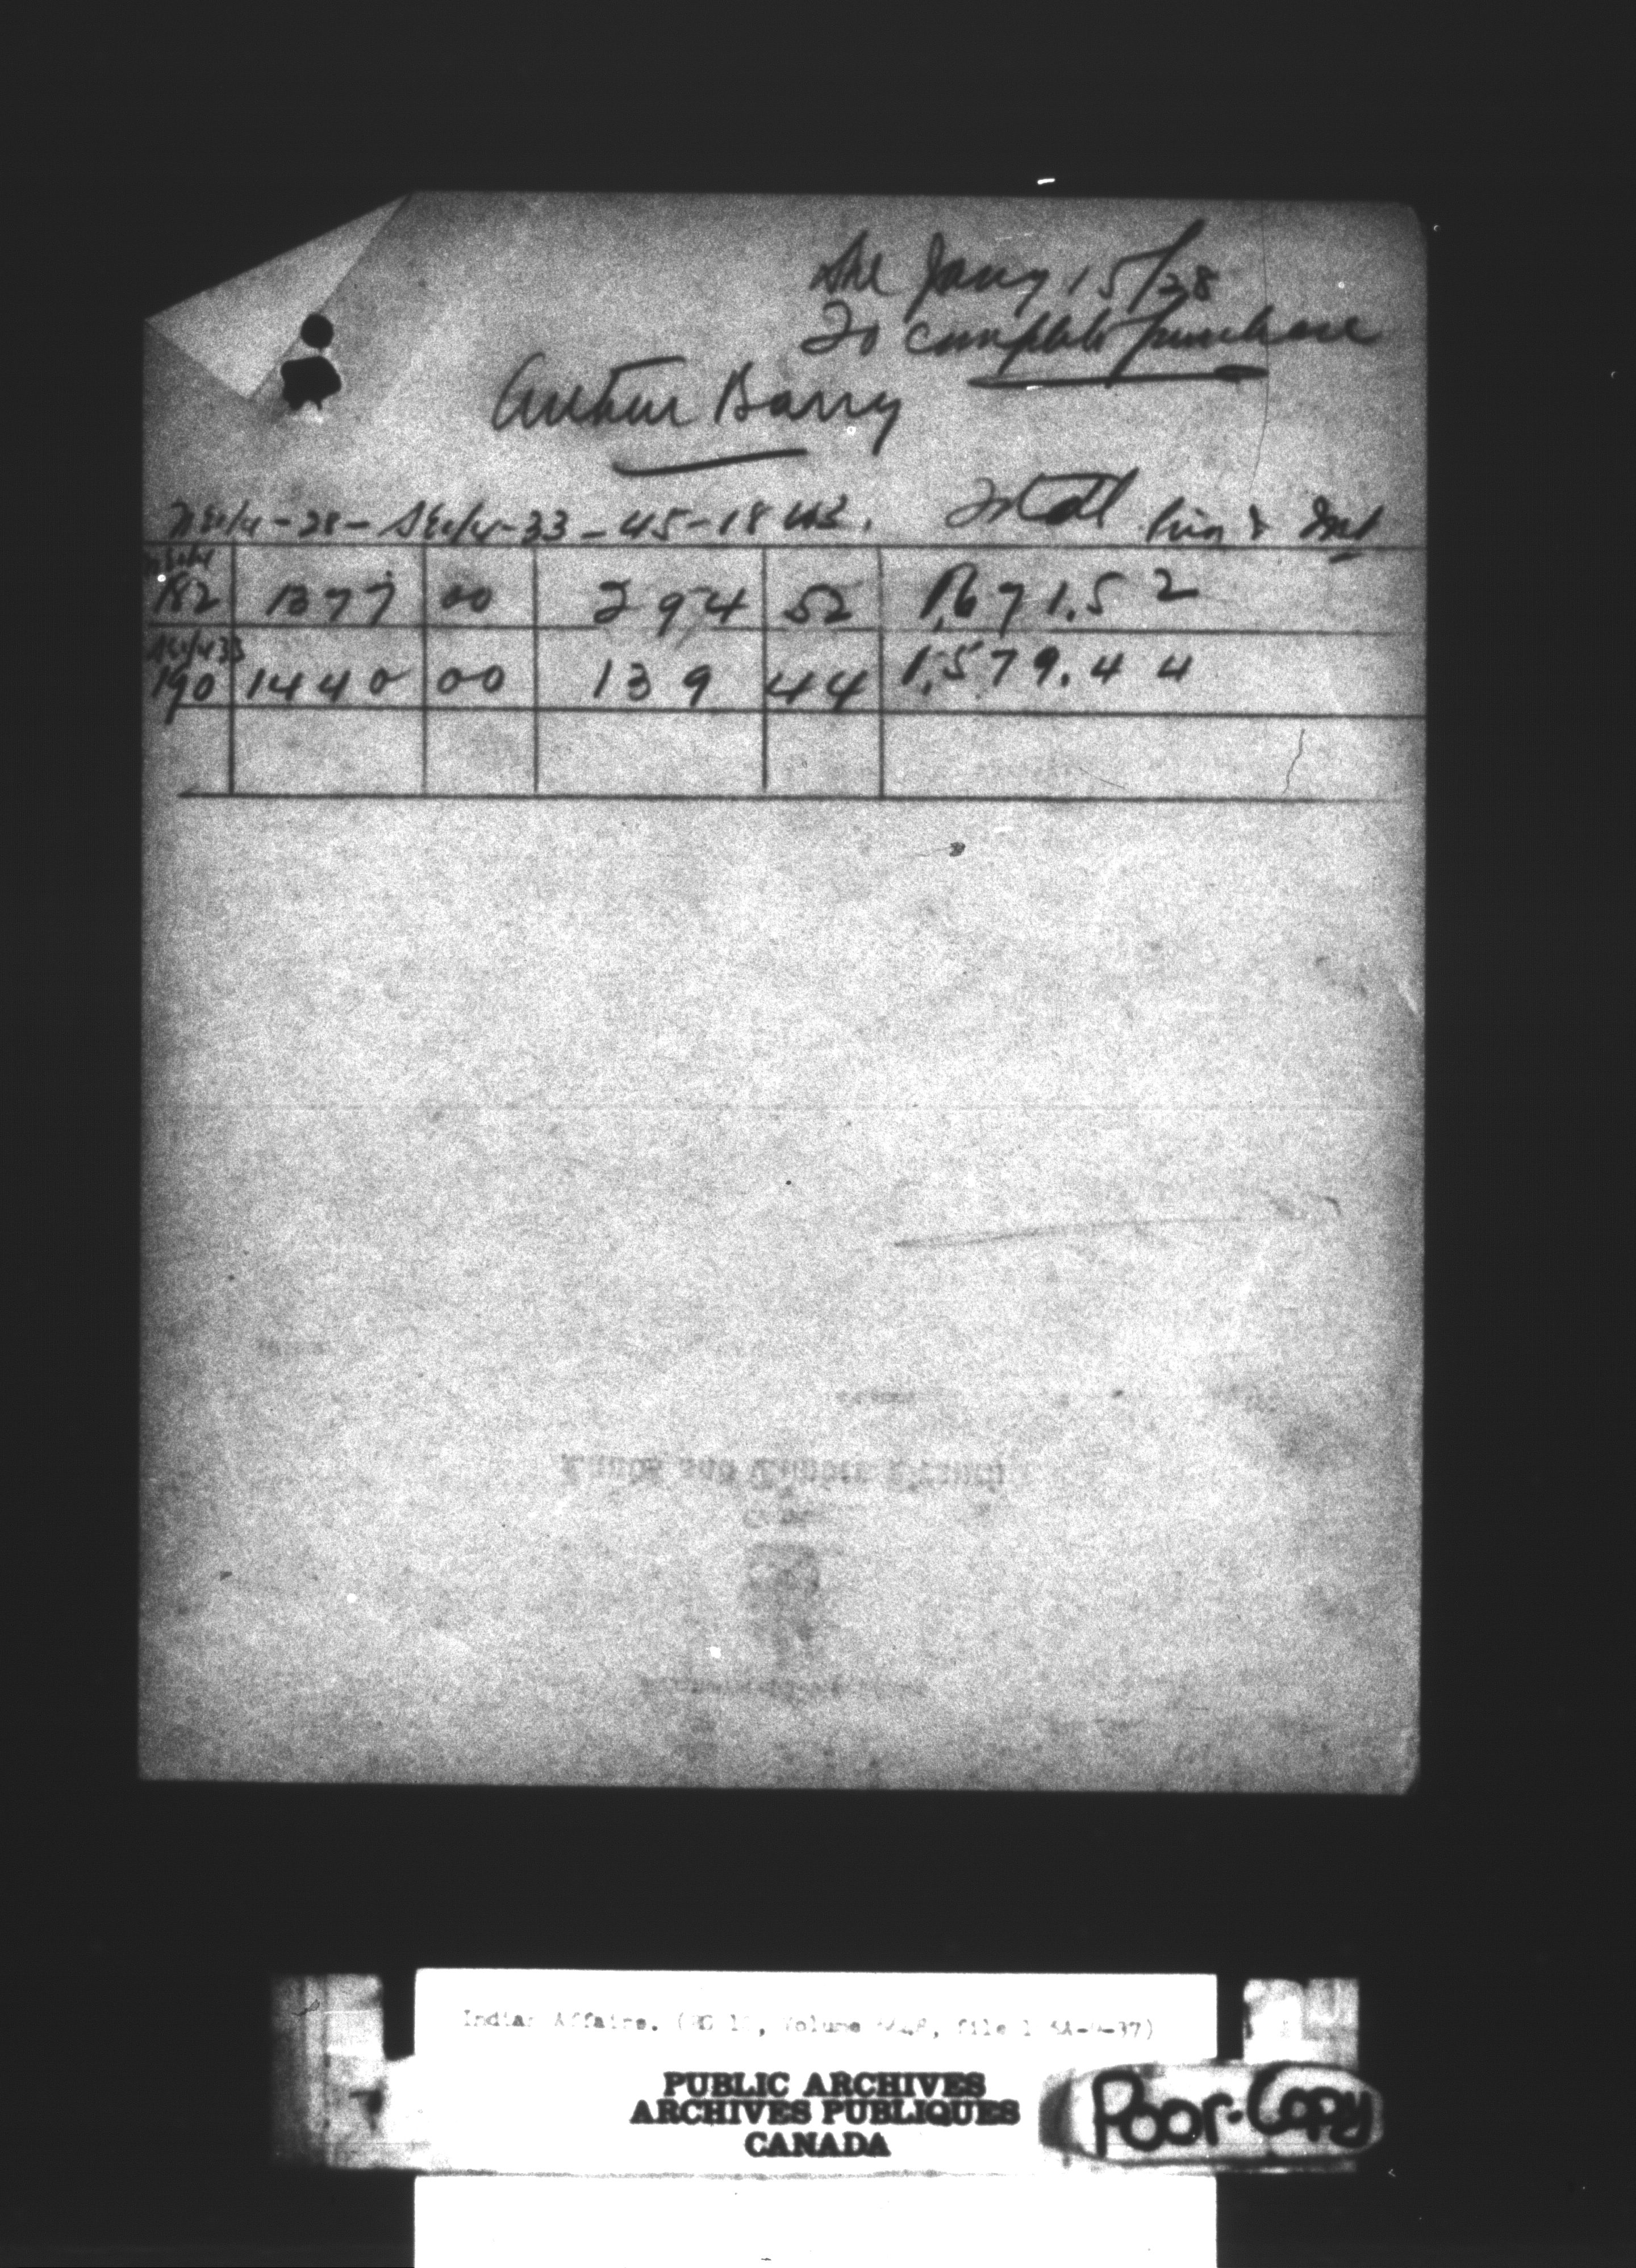 Due Jany 15/28
To complete purchase
Arthur Barry
NE1/4-28-SE1/4-33-45-18 W2. Total Prin & Int
NE1/4
182 1377 00 294 52 1,671.52
SE1/4 33
190 1440 00 139 44 1,579.44
Lands and Timber Branch
Indian Affairs. (RG 10, Volume file
PUBLIC ARCHIVES
ARCHIVES PUBLIQUES
CANADA
Poor-Copy